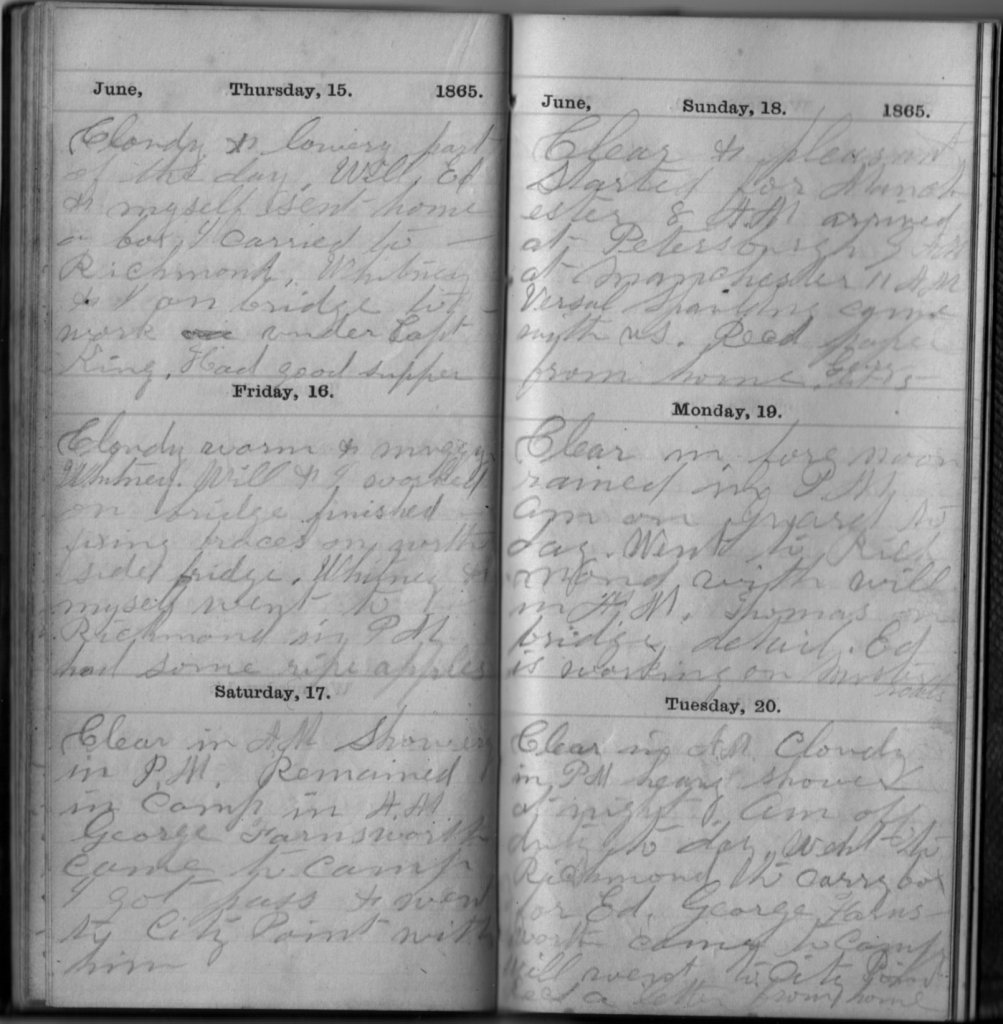 June, Thursday, 15. 1865.
Cloudy & lowery part
of the day. Will, Ed
& myself sent home
a box, I carried to
Richmond. Whitney
& I on bridge to
work under Capt
King. Had good supper
Friday, 16.
Cloudy warm & muggy
Whitney. Will & I worked
on bridge finished
fixing braces on north
side bridge. Whitney &
myself went to
Richmond in P.M.
had some ripe apples
Saturday, 17.
Clear in A.M. Showery
in P.M. Remained
in Camp in A.M.
George Farnsworth
came to camp
I got pass & went
to City Point with
him
June, Sunday, 18. 1865.
Clear & pleasant
Started for Manch
ester 8 A.M. arrived
at Petersburgh 9 A.M
at Manchester 11 A.M
Spaulding came
with us. Recd paper
from home
Monday, 19.
Clear in fore noon
rained in P.M.
Am on guard to
day. Went to Rich
mond with will
in A.M. Thomas on
bridge detail. Ed
is working on
Tuesday, 20.
Clear in A.M. Cloudy
in P.M heavy shower
at night. Am off
duty to day. Went to
Richmond to carry box
for Ed. George Farns-
worth came to Camp
Will went to City Point
Recd a letter from home